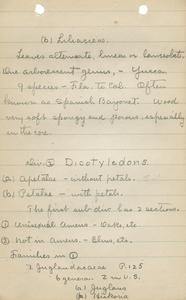 (b) Liliaceae.
Leaves alternate, linear or lanceolate.
One arborescent genus, - Yucca
9 species - Fla. to Cal. Often
known as Spanish Bayonet. Wood
very soft spongy and porous, especially
in the core.
Div. ② Dicotyledons.
(a) Apetalae - without petals.
(b) Petalae - with petals.
The first sub-div. has 2 sections.
① Unisexual Aments - Oaks, etc.
② Not in Aments. - Elms, etc.
Families in ①
I Juglandaceae P. 125
6 genera. 2 in U.S.
(a) Juglans
(b) Hickoria